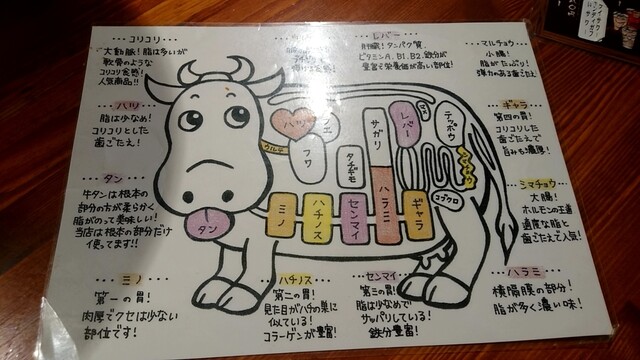 コリコリ
大動脈！脂は多いが
軟骨のような
コリコリ食感！
人気商品！！
ハツ
脂は少なめ！
コリコリとした
歯ごたえ！
タン
牛タンは根本の
部分の方が柔らかく
脂がのって美味しい！
当店は根本の部分だけ
使ってます！！
ミノ
第一の胃！
肉厚でクセは少ない
部位です！
ハチノス
第二の胃！
見た目がハチの巣に
似ている！
コラーゲンが豊富！
センマイ
第三の胃！
脂は少なめで
サッパリしている！
鉄分豊富！
レバー
肝臓！タンパク質、
ビタミンA、B1、B2、鉄分が
豊富で栄養価が高い部位！
マルチョウ
小腸！
脂がたっぷり！
弾力のある歯ごたえ
ギャラ
第四の胃！
コリコリした
歯ごたえで
旨みも濃厚！
シマチョウ
大腸！
ホルモンの王道
適度な脂と
歯ごたえで人気！
ハラミ
横隔膜の部分！
脂が多く濃い味！
ハツ
ウルテ
フワ
タチギモ
サガリ
レバー
テッポウ
コブクロ
タン
ミノ
ハチノス
センマイ
ハラミ
ギャラ